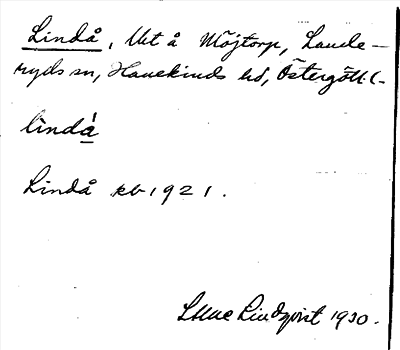 Lindå, Utt å Möjtorp, Lande-
ryds sn, Hanekinds hd, Östergötl. l.
lìndá
Lindå kb 1921.
Lindqvist 1930.